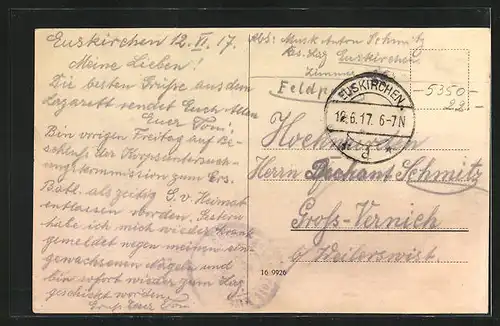 Euskirchen 12. VI. 17.
Meine Lieben!
Die besten Grüße aus dem
Lazarett sendet Euch Allen
Euer Toni!
Bin vorigen Freitag auf Be-
schluß der Korpsuntersuch-
ungskommission zum Ers.
Batl. als zeitig G.v. Heimat
entlassen worden. Gestern
habe ich mich wieder krank
gemeldet wegen meinen ein-
gewachsenen Nägeln und
bin sofort wieder zum Laz.
geschickt worden.
Gruß Euer Toni
Abs: Musk. Anton Schmitz
Res. Laz. Euskirchen
Zimmer
Feldp
5350-
22.-
EUSKIRCHEN
12.6.17. 6-7N
* d *
Hochwürden
Herrn Dechant Schmitz
Groß-Vernich
b/ Weilerswist
16 9926